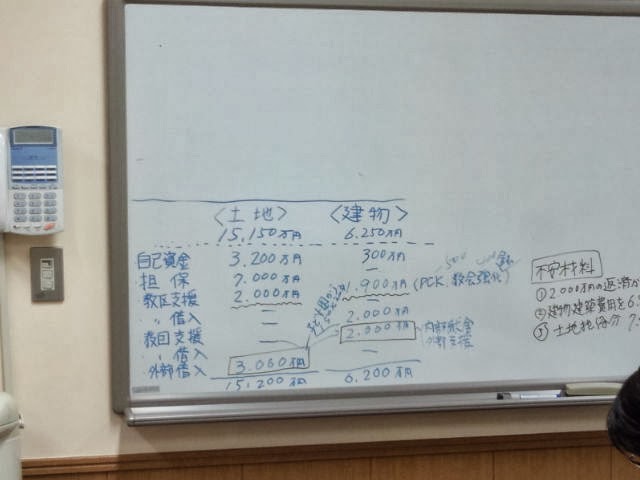 〈土地〉 〈建物〉
15,150万円 6,250万円
自己資金 3,200万円 300万円
担保 7,000万円 —
教区支援 2,000万円 1,900万円 (PCK、教会強化)
〃 借入 — 2,000万円
教団支援 — 2,000万円 内部献金
〃 借入 — 外部支援
外部借入 3,060万円 —
15,200万円 6,200万円
不安材料
① 2000万円の返済が
② 建物建築費用を6.
③ 土地担保分 7.